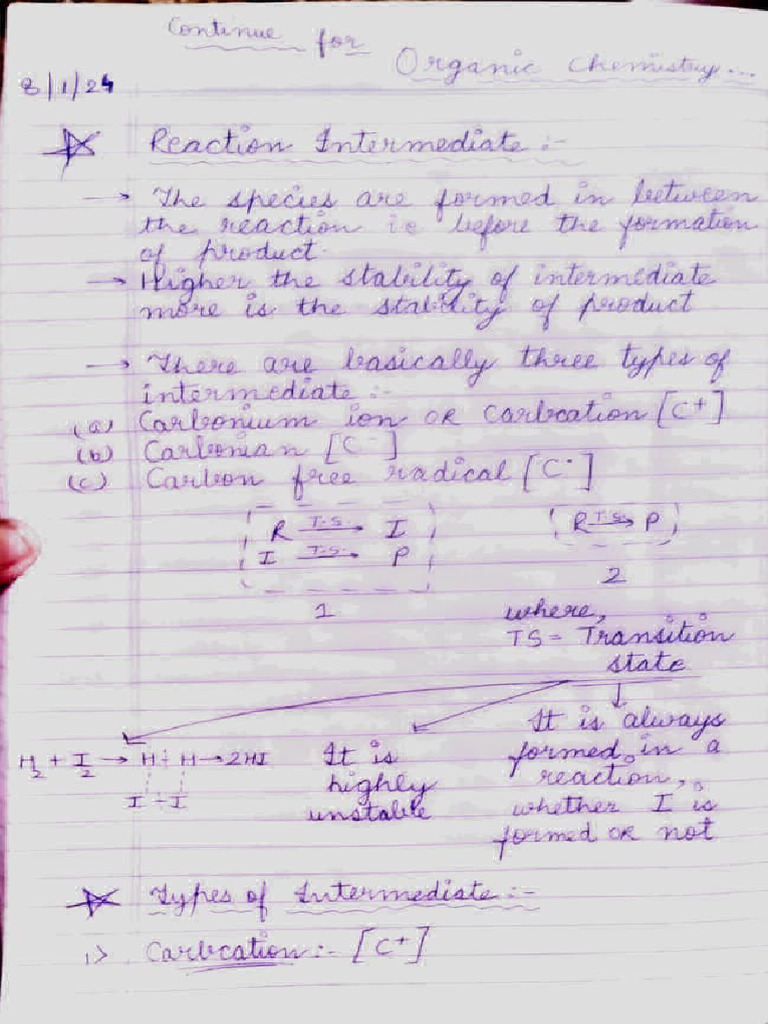 Continue for
Organic Chemistry...
8/1/24
Reaction Intermediate :-
→ The species are formed in between
the reaction ie before the formation
of product.
→ Higher the stability of intermediate
more is the stability of product
→ There are basically three types of
intermediate :-
(a) Carbonium ion OR Carbcation [C+]
(b) Carbonian [C-]
(c) Carbon free radical [C·]
R T.S.→ I
I T.S.→ P
1
R TS→ P
2
where,
TS = Transition
state
H2 + I2 → H-H → 2HI
I-I
It is
highly
unstable
It is always
formed in a
reaction,
whether I is
formed OR not
Types of Intermediate :-
1> Carbcation :- [C+]